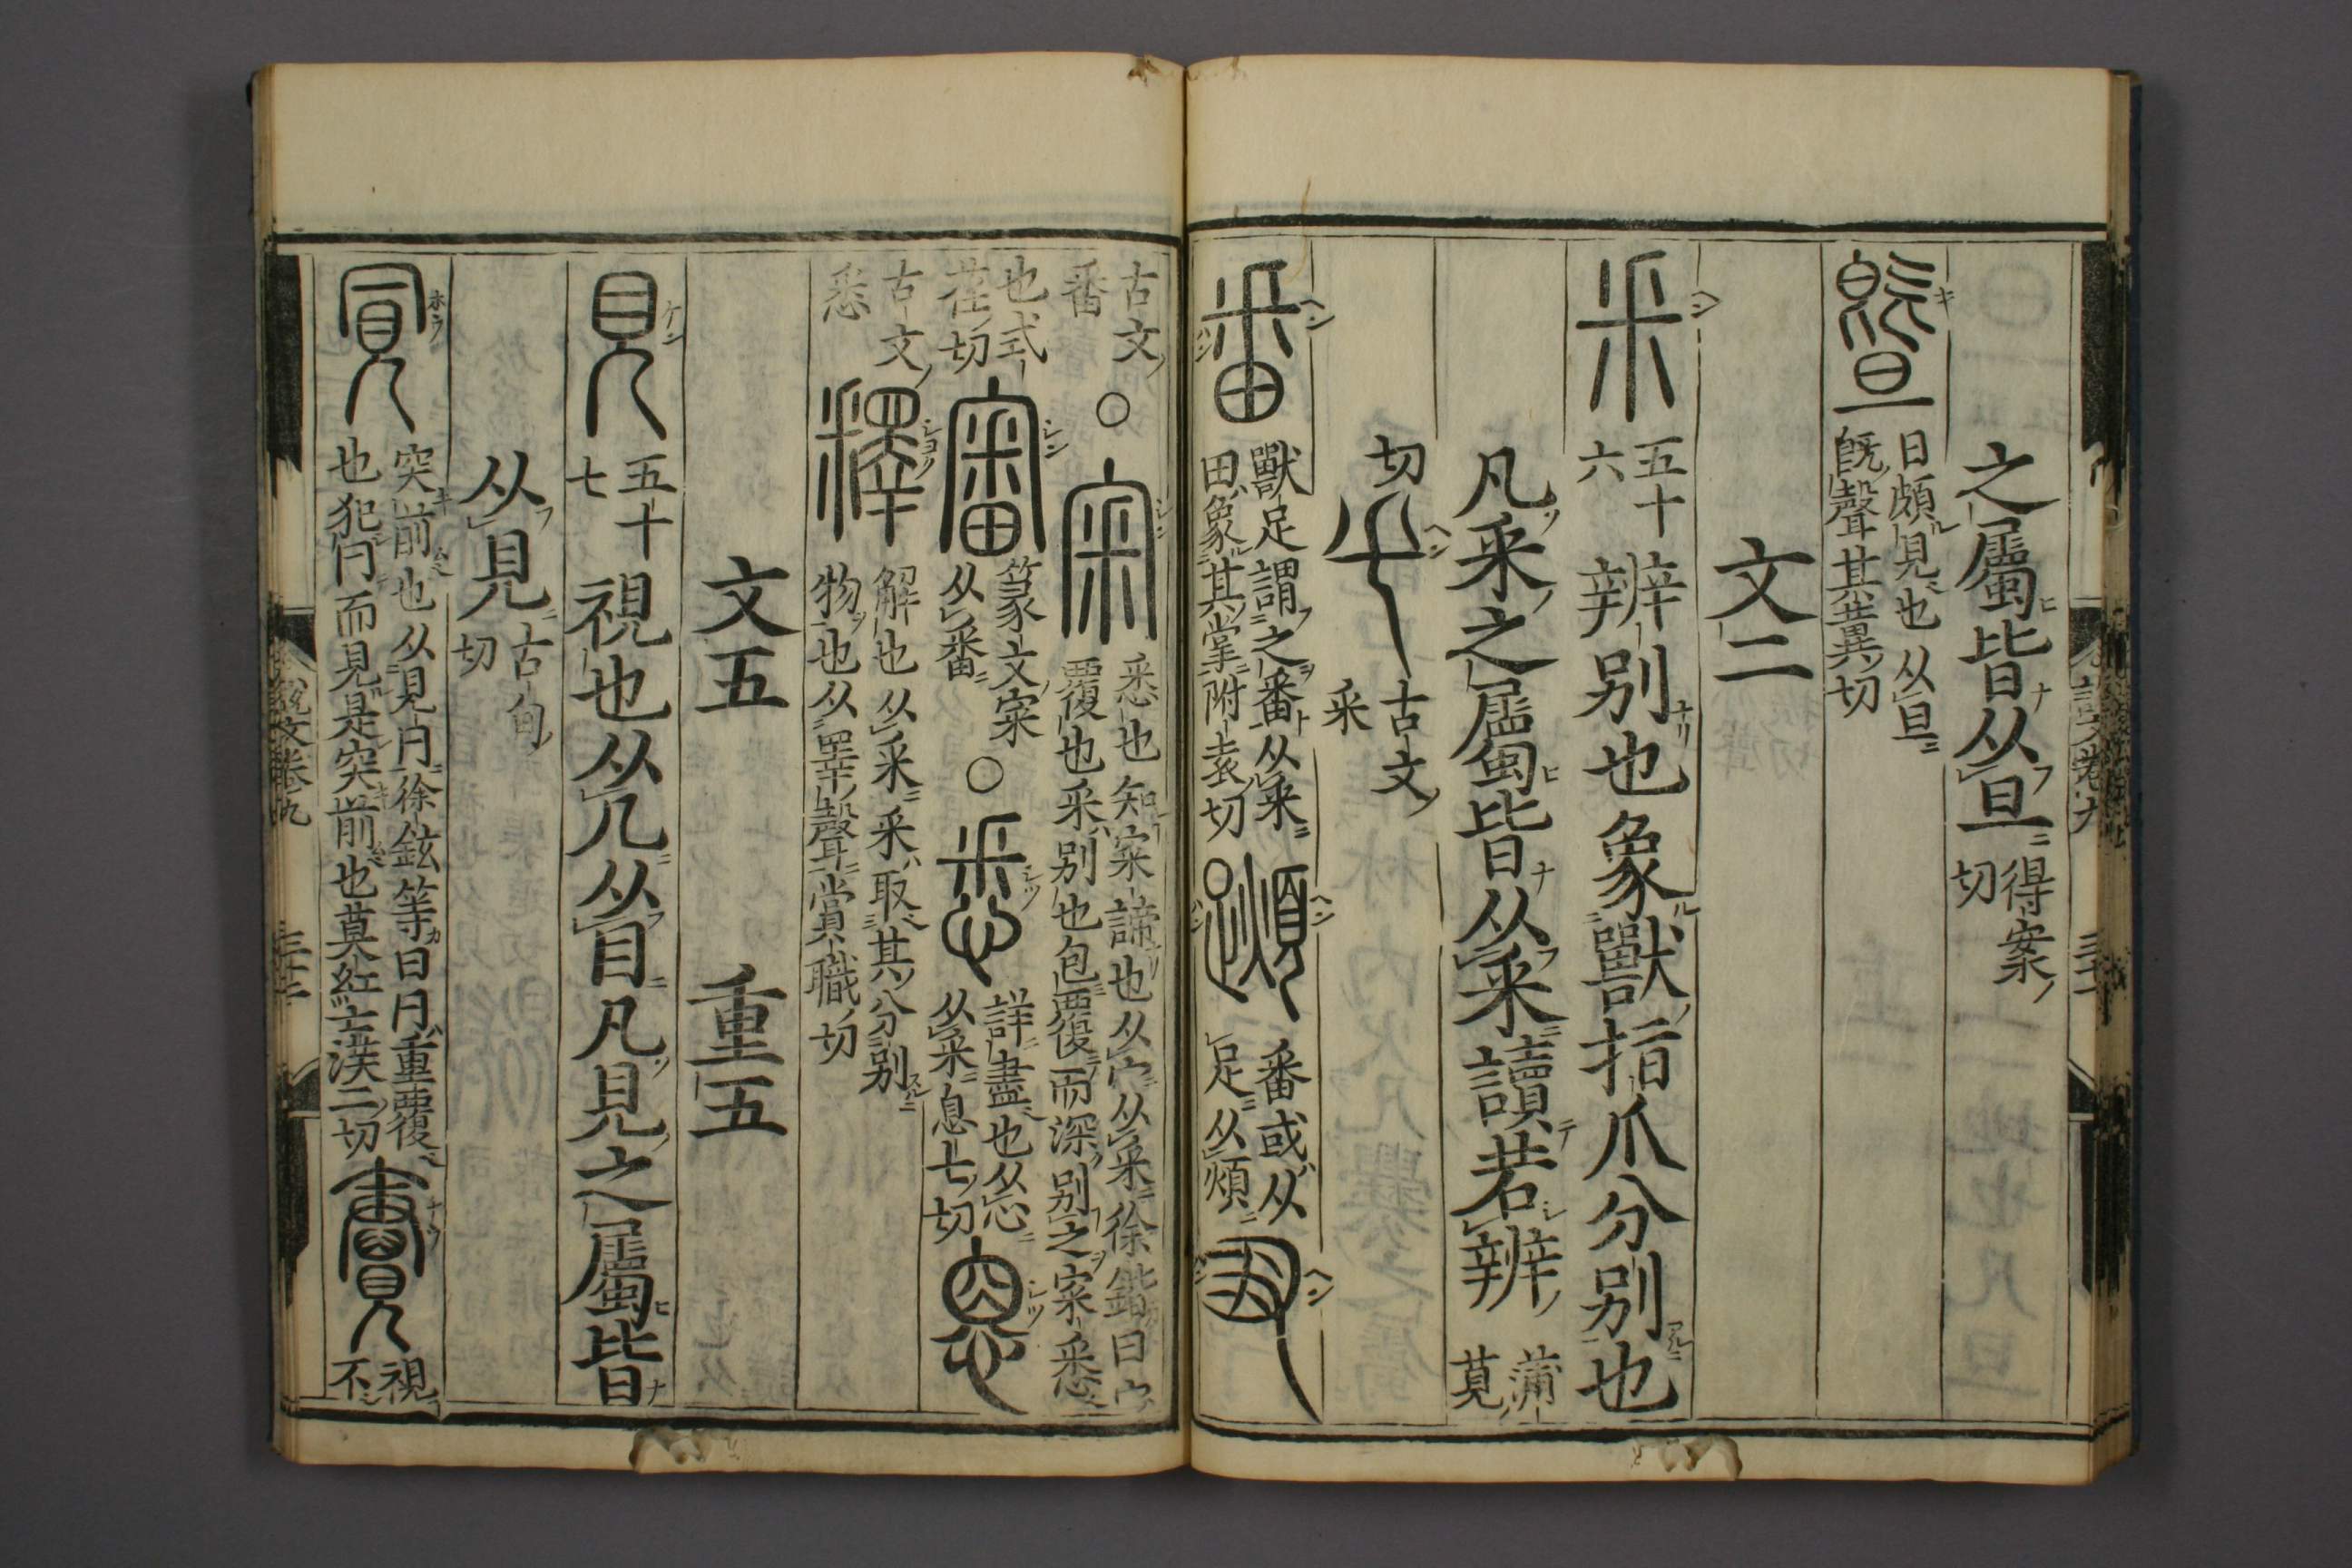 之屬皆从旦得案切
曁日頗見也从旦旣聲其兾切
文二
釆五十六辨别也象獸指爪分别也
凡釆之屬皆从釆讀若辨蒲莧
切 古文釆
番獸足謂之番从釆田象其掌附袁切 𨆌番或从足从煩
古文番○宷悉也知宷諦也从宀从釆徐鍇曰宀覆也釆别也包覆而深别之宷悉
也式荏切審篆文宷从番○悉詳盡也从心从釆息七切
古文悉釋解也从釆釆取其分别物也从睪聲賞職切
文五 重五
見五十七視也从儿从目凡見之屬皆
从見古甸切
𧠊突前也从見冃徐鉉等曰冃重覆也犯冃而見是突前也莫紅亡渎二切 視不
說文卷九